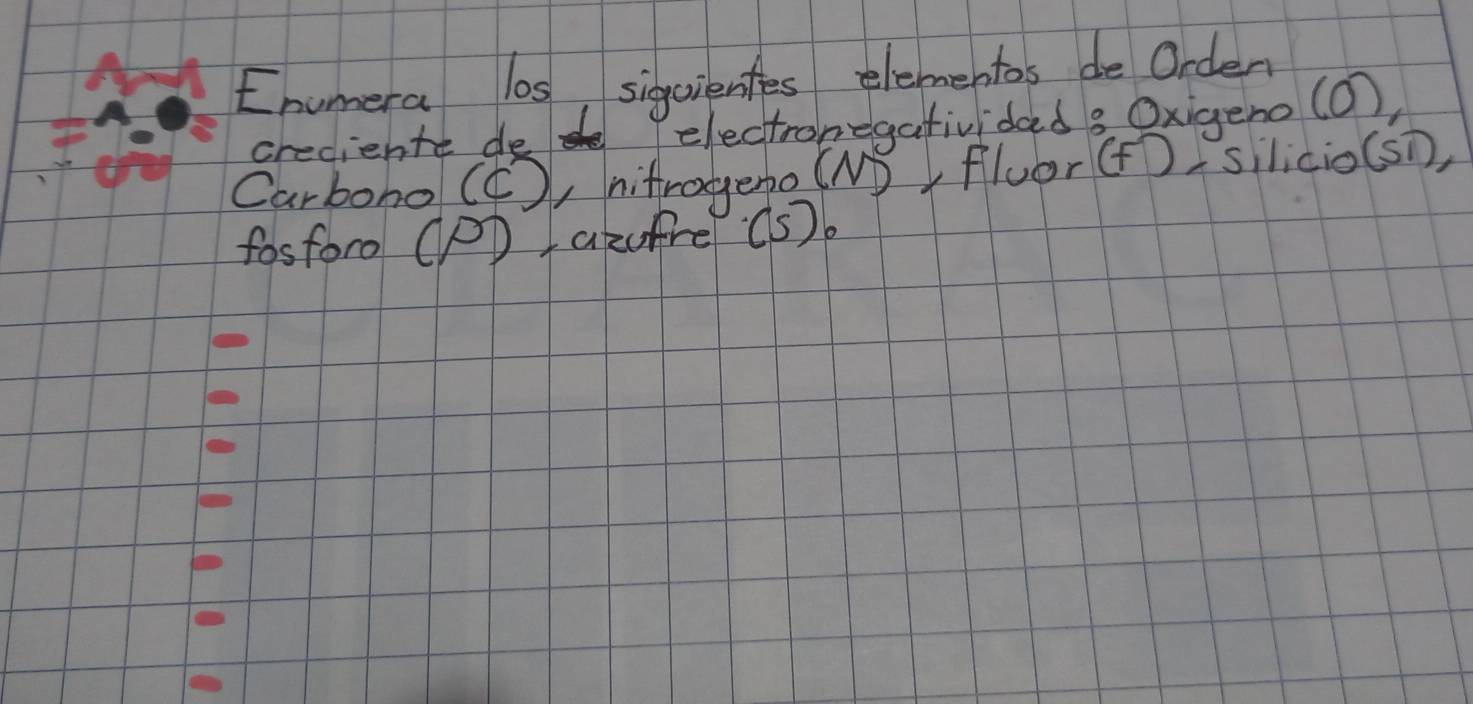 Enumera los siguientes elementos de Orden
creciente de electronegatividad: Oxigeno (O),
Carbono (C), nitrogeno (N), fluor (f), silicio (Si),
fosforo (P), azufre (S).